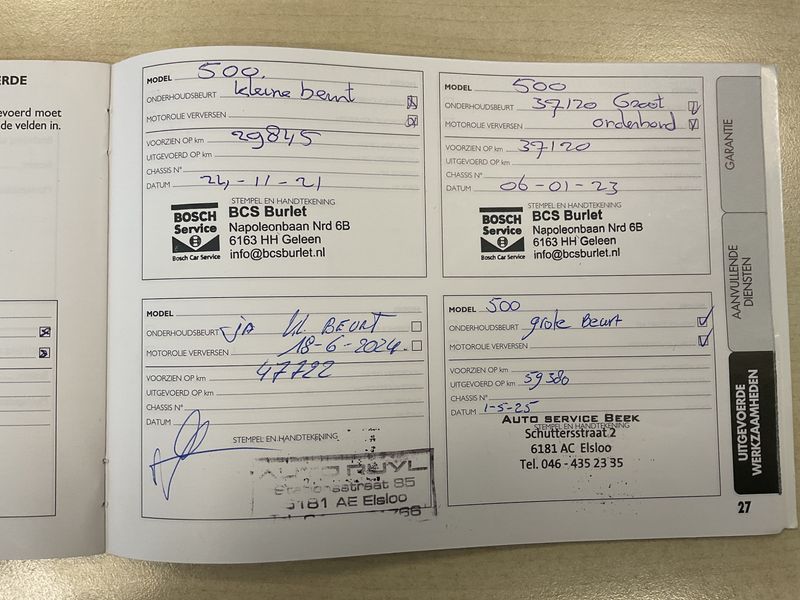 ERDE
evoerd moet
de velden in.
MODEL 500.
ONDERHOUDSBEURT kleine beurt
MOTOROLIE VERVERSEN
VOORZIEN OP km 29845
UITGEVOERD OP km
CHASSIS N°
DATUM 24-11-21
STEMPEL EN HANDTEKENING
BOSCH
Service
Bosch Car Service
BCS Burlet
Napoleonbaan Nrd 6B
6163 HH Geleen
info@bcsburlet.nl
MODEL 500
ONDERHOUDSBEURT 37120 Groot
MOTOROLIE VERVERSEN onderhond
VOORZIEN OP km 37120
UITGEVOERD OP km
CHASSIS N°
DATUM 06-01-23
STEMPEL EN HANDTEKENING
BOSCH
Service
Bosch Car Service
BCS Burlet
Napoleonbaan Nrd 6B
6163 HH Geleen
info@bcsburlet.nl
MODEL
ONDERHOUDSBEURT ja kl BEURT
MOTOROLIE VERVERSEN 18-6-2024.
VOORZIEN OP km 47722
UITGEVOERD OP km
CHASSIS N°
DATUM
STEMPEL EN HANDTEKENING
AUTO RUYL
Stationsstraat 85
6181 AE Elsloo
MODEL 500
ONDERHOUDSBEURT grote Beurt
MOTOROLIE VERVERSEN
VOORZIEN OP km
UITGEVOERD OP km 59380
CHASSIS N°
DATUM 1-5-25
STEMPEL EN HANDTEKENING
AUTO SERVICE BEEK
Schuttersstraat 2
6181 AC Elsloo
Tel. 046 - 435 23 35
GARANTIE
AANVULLENDE
DIENSTEN
UITGEVOERDE
WERKZAAMHEDEN
27